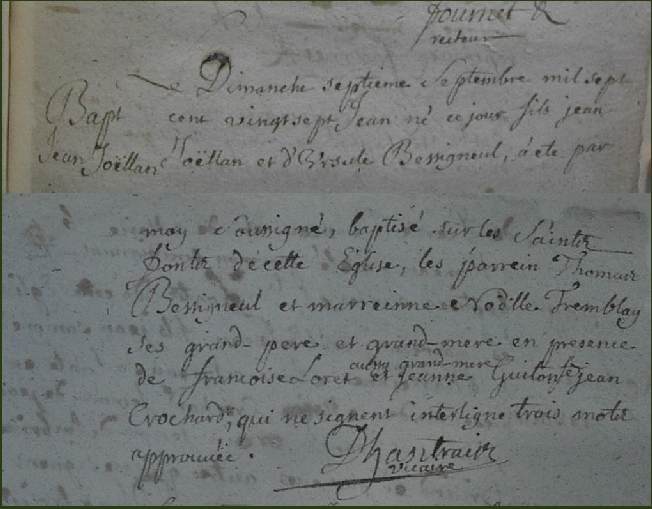 fournet R
recteur
Le Dimanche septieme Septembre mil sept
Bapt cent vingt sept, Jean né ce jour fils jean
Jean Joëttan Joëttan et d'Ursule Bessigneul, a été par
moy Soussigné, baptisé sur les Saints
fonts decette Eglise, les parrein Thomas
Bessigneul et marreinne Nodille Tremblay
Ses grand-pere et grand-mere en presence
aussy grand-mere
de francoise Loret et jeanne jean
Crochard, qui ne signent interligne trois mots
approuvée.
Dhantraix
vicaire